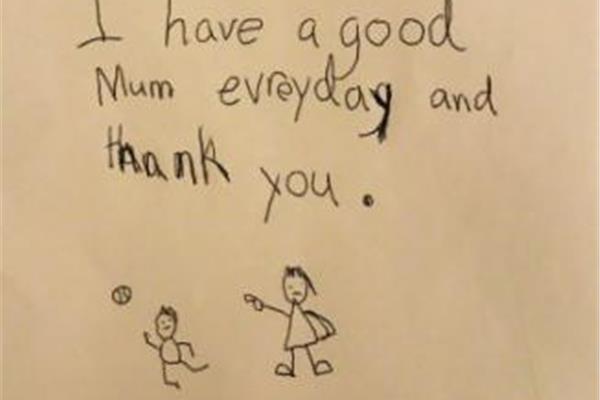 I have a good
Mum evreyday and
thank you.